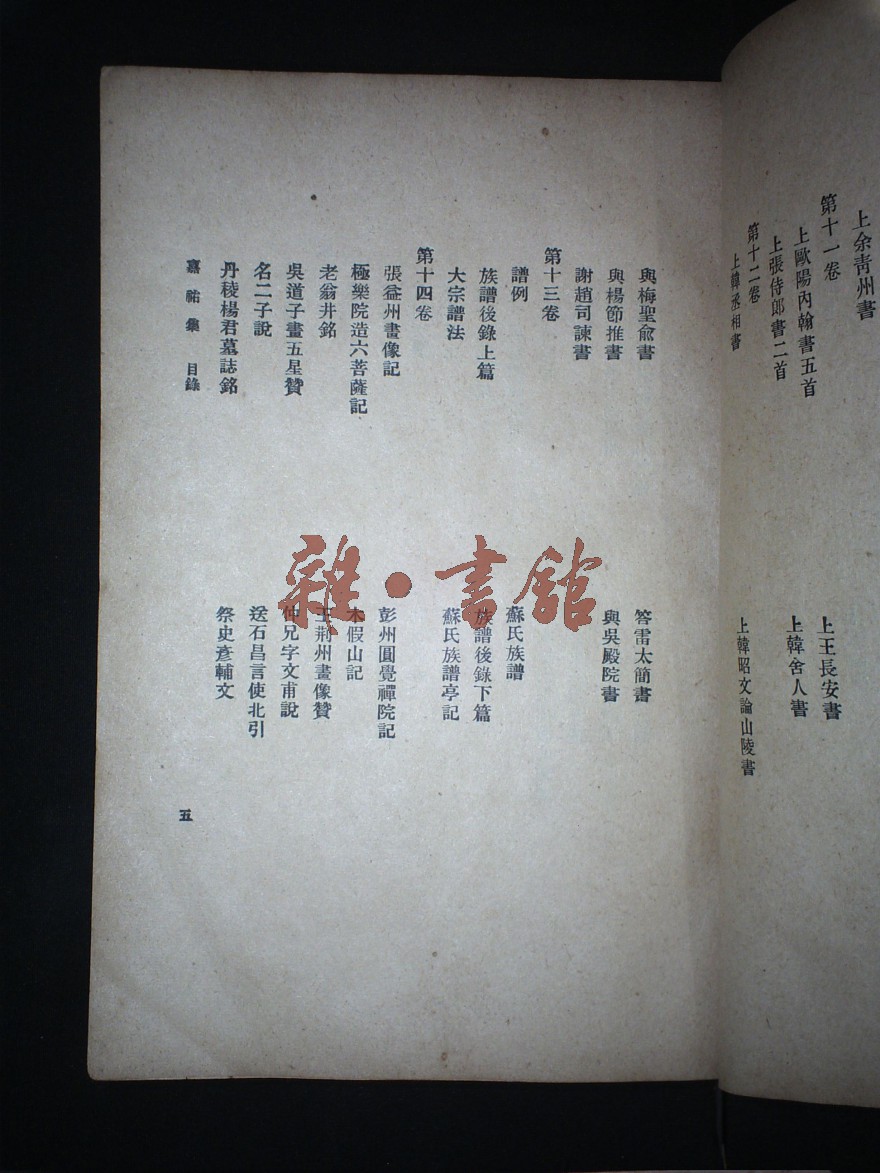 上余青州書
第十一卷
上歐陽內翰書五首
上王長安書
上張侍郎書二首
上韓舍人書
第十二卷
上韓丞相書
上韓昭文論山陵書
與梅聖俞書
答雷太簡書
與楊節推書
與吳殿院書
謝趙司諫書
第十三卷
譜例
蘇氏族譜
族譜後錄上篇
族譜後錄下篇
大宗譜法
蘇氏族譜亭記
第十四卷
張益州畫像記
彭州圓覺禪院記
極樂院造六菩薩記
木假山記
老翁井銘
王荊州畫像贊
吳道子畫五星贊
仲兄字文甫說
名二子說
送石昌言使北引
丹稜楊君墓誌銘
祭史彥輔文
嘉祐集 目錄
五
雜·書館